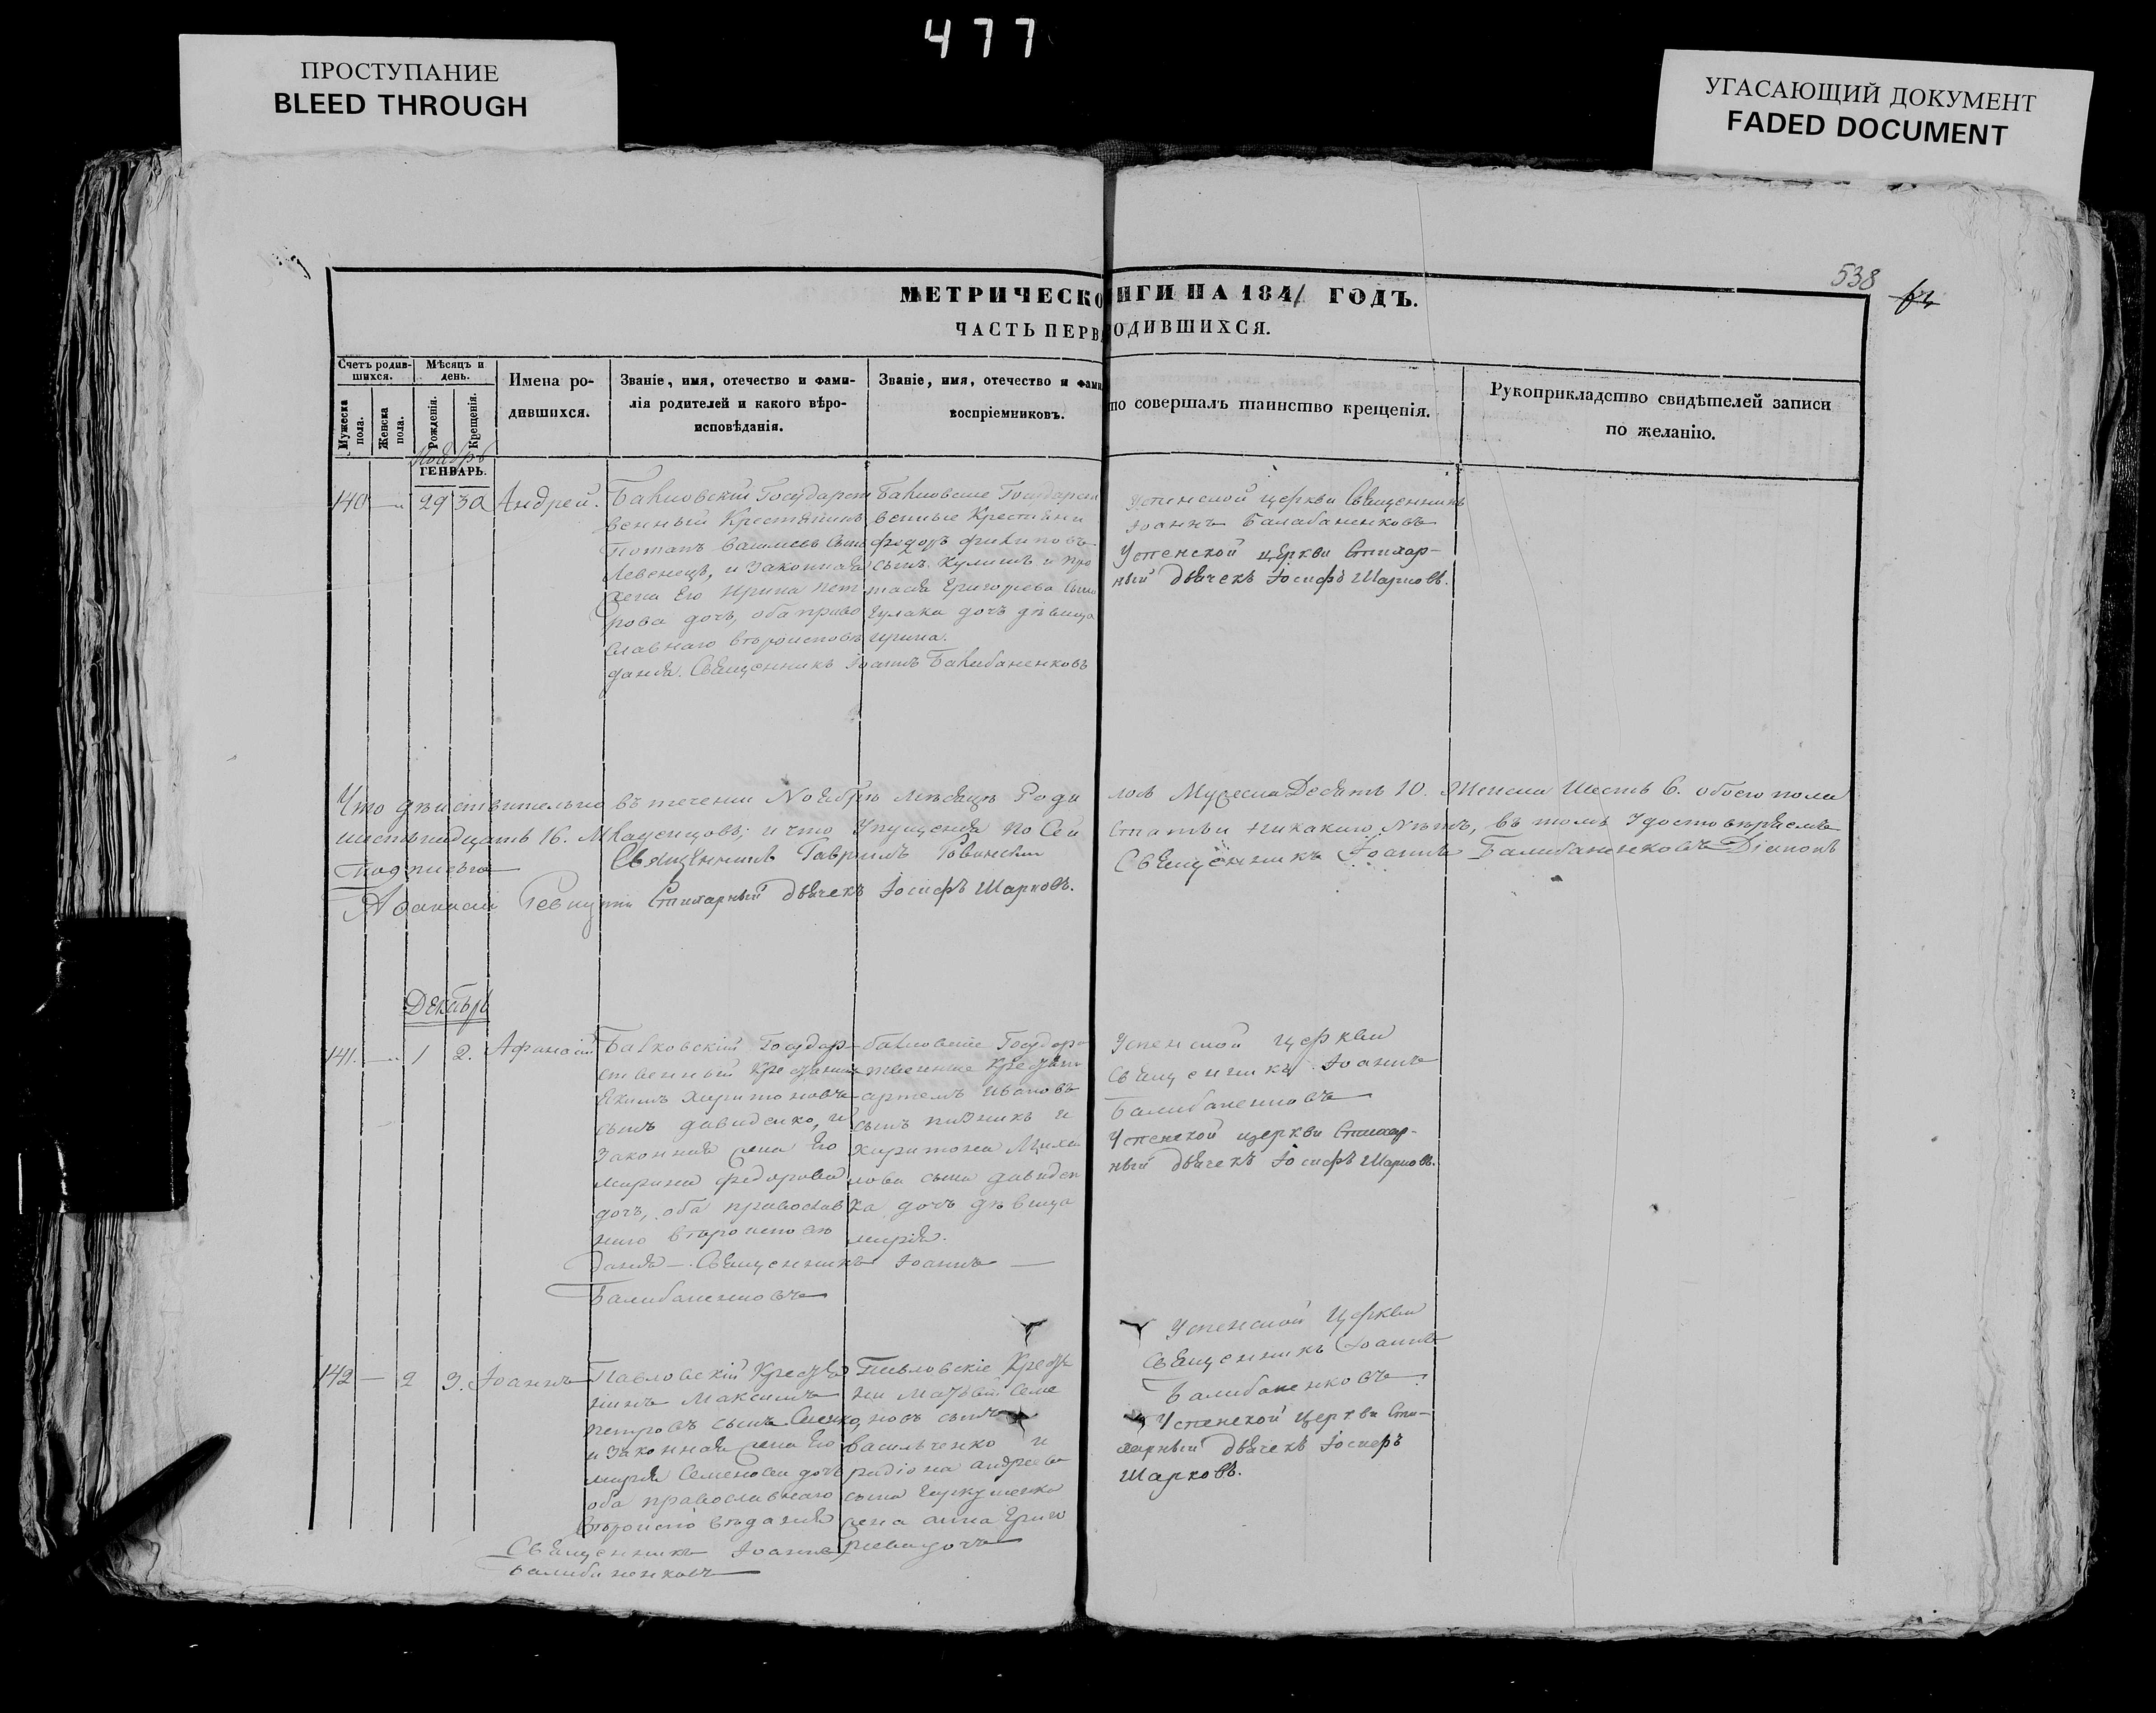 477
ПРОСТУПАНИЕ
BLEED THROUGH
УГАСАЮЩИЙ ДОКУМЕНТ
FADED DOCUMENT
538
МЕТРИЧЕСКО ИГИ НА 1841 ГОДЪ.
ЧАСТЬ ПЕРВ ОДИВШИХСЯ.
Счетъ родив-
шихся.
Мужеска
пола.
Женска
пола.
Мѣсяцъ и
день.
Рожденія.
Крещенія.
Имена ро-
дившихся.
Званіе, имя, отечество и фами-
лія родителей и какого вѣро-
исповѣданія.
Званіе, имя, отечество и фами
воспріемниковъ.
то совершалъ таинство крещенія.
Рукоприкладство свидѣтелей записи
по желанію.
Ноябрь
ГЕНВАРЬ.
140 — 29 30 Андрей.
Государст
венный Крестянинъ
Потапъ сынъ
Левенецъ, и законная
жена Его Ирина Пет
рова дочь, оба право
славнаго вѣроисповѣ
данія. Священникъ Іоаннъ Балабаненковъ
Государст
венные Крестяни
Федоръ Филиповъ
сынъ Кулишъ и Про
тасія Григорева сына
Гулака дочь дѣвица
Ирина.
Успенской церкви Священникъ
Іоаннъ Балабаненковъ
Успенской церкви Стихар-
ный Дьячекъ Іосифъ Шарковъ.
Что дѣйствительно въ течении Ноября мѣсяца Роди лось Мужеска Десять 10. Женска Шесть 6. обоего пола
шестьнадцать 16. Младенцовъ; и что Упущенія по Сей Статьи никакого Нѣтъ, въ томъ Удостовѣряемъ
Подписью Священникъ Гавриилъ Священникъ Іоаннъ Балабаненковъ Діаконъ
Афанасій Стихарный Дьячекъ Іосифъ Шарковъ.
Декабрь
141. — 1 2. Афанасій
Балковскій Государ-
ственный Крестянинъ
Якимъ Харитоновъ
сынъ Давиденко, и
законная жена Его
Марина Федорова
дочь, оба православ
наго вѣроисповѣ
данія — Священникъ Іоаннъ —
Балабаненковъ
Балковскіе Государ-
твенные Крестяни
Артемъ Ивановъ
сынъ Пизникъ и
Харитона Михаи
лова сына Давиден
ка дочь дѣвица
Марія.
Успенской церкви
Священникъ Іоаннъ
Балабаненковъ
Успенской церкви Стихар-
ный Дьячекъ Іосифъ Шарковъ.
142 — 2 3. Іоаннъ
Павловскій Крестья
нинъ Максимъ
Петровъ сынъ
и законная жена Его
Марія Семенова дочь
оба православнаго
вѣроисповѣданія
Священникъ Іоаннъ
Балабаненковъ
Павловскіе Крестья
ни Матвѣй Семе
новъ сынъ
Васильченко и
Радіона Андреева
сына
жена Анна Григо
рьева дочь
Успенской Церкви
Священникъ Іоаннъ
Балабаненковъ
Успенской Церкви Сти-
харный Дьячекъ Іосифъ
Шарковъ.